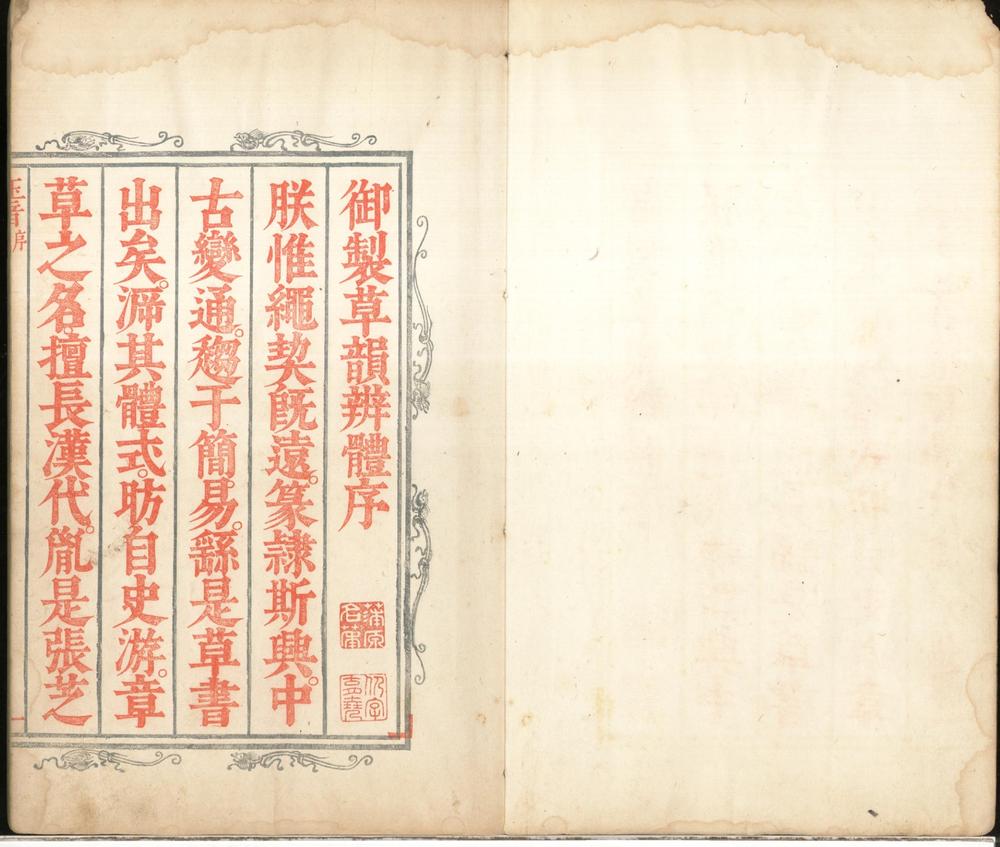 御製草韻辨體序
朕惟繩契旣遠。篆隷斯興。中
古變通。趨于簡易。繇是草書
出矣。溯其體式。昉自史游。章
草之名。擅長漢代。胤是張芝
序
一